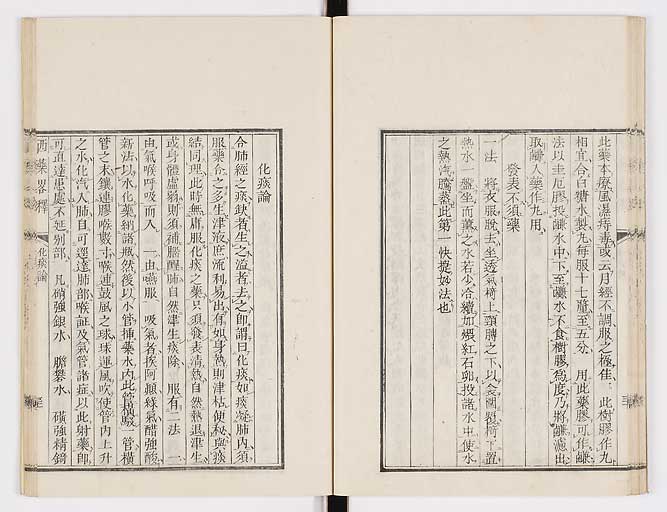 此藥本療風濕痔毒或云月經不調服之極佳 此樹膠作丸
相宜合白糖水製丸每服十七釐至五分 用此藥膠可作鹼
法以圭厄膠投鹼水中下至鹼水不食樹膠為度乃將鹼濾出
取鹼入藥作丸用
發表不須藥
一法 將衣服脫去坐透氣椅上頸膊之下以衾圍裹椅下置
熱水一盤坐而薰之水若少冷續加煨紅石卵投諸水中使水
之熱汽騰蒸此第一快捷妙法也
化痰論
令肺經之痰缺者生之溢者去之即謂曰化痰如痰凝肺内須
服藥令之多生津液庶流利易出有如身熱則津枯便秘與痰
結同理此時無庸服化痰之藥只須發表清熱自然熱退津生
或身體虛弱則須補腦壯肺自然津生痰除 服有二法 一
由氣喉呼吸而入 一由嚥服 吸氣者挨阿顛綠氣醋強酸
新法以水化藥納諸瓶然後以小管插藥水内此管橫歧 管橫
管之末鑲連膠喉數寸喉連鼓風之球球運風吹使管内上升
之水化汽入肺自可逕達肺部喉証及氣管諸症以此射藥即
可直達患處不延别部 凡硝強銀水 膽礬水 磺強精錡
西藥畧釋
化痰論